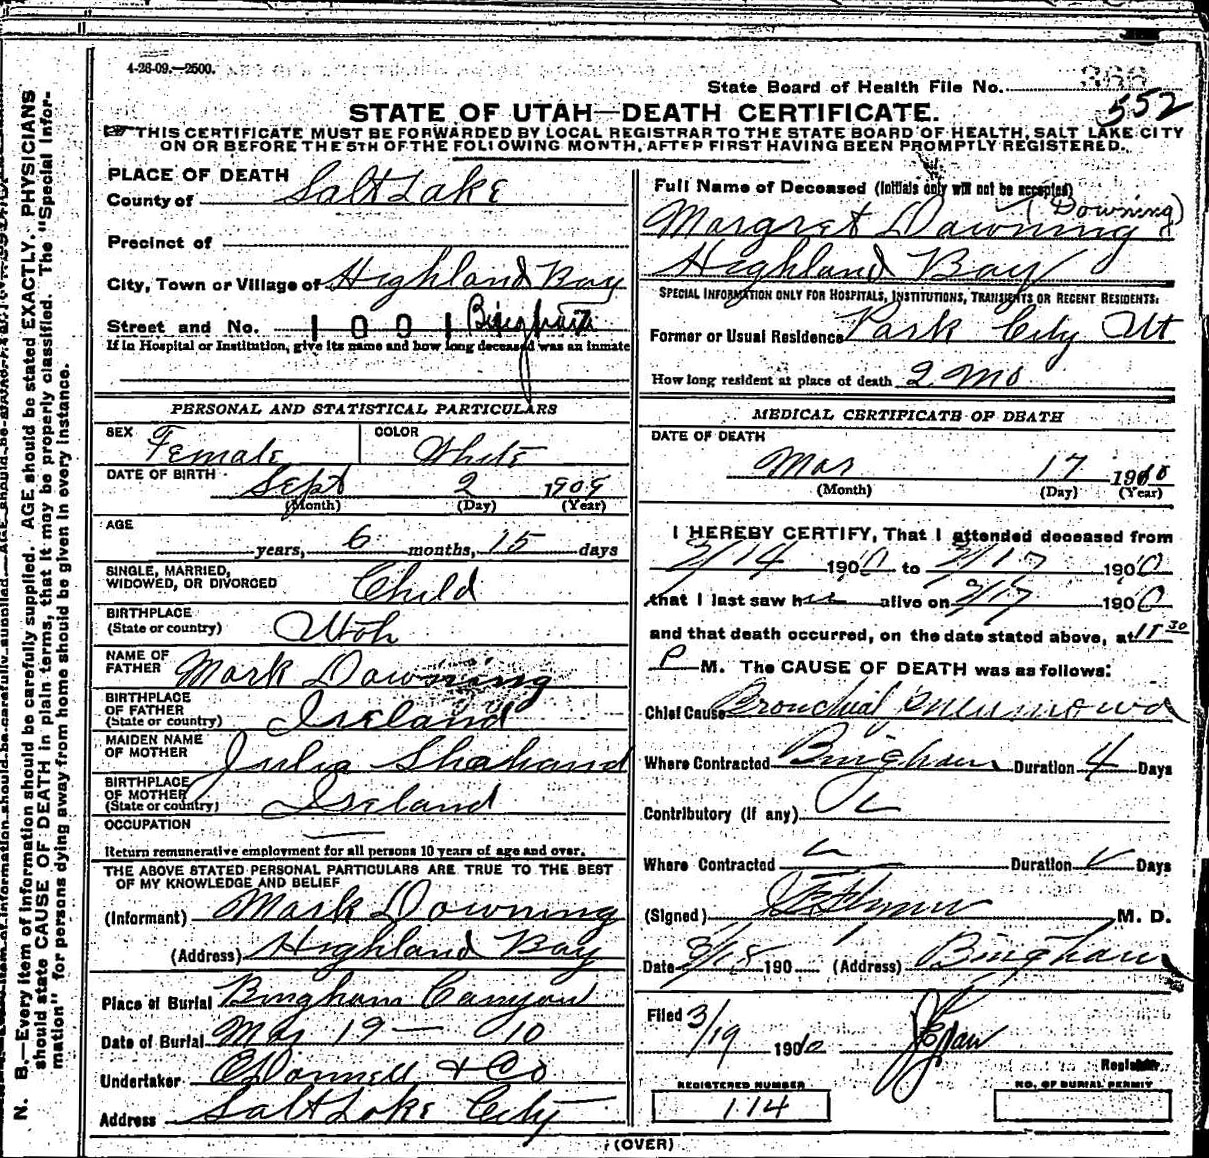 4-26-09.—2500.
State Board of Health File No. 366
552
STATE OF UTAH—DEATH CERTIFICATE.
THIS CERTIFICATE MUST BE FORWARDED BY LOCAL REGISTRAR TO THE STATE BOARD OF HEALTH, SALT LAKE CITY
ON OR BEFORE THE 5TH OF THE FOLLOWING MONTH, AFTER FIRST HAVING BEEN PROMPTLY REGISTERED.
PLACE OF DEATH
County of Salt Lake
Precinct of
City, Town or Village of Highland Boy
Street and No. 1001 Bingham
If in Hospital or Institution, give its name and how long deceased was an inmate
PERSONAL AND STATISTICAL PARTICULARS
SEX Female COLOR White
DATE OF BIRTH Sept 2 1909
(Month) (Day) (Year)
AGE
years, 6 months, 15 days
SINGLE, MARRIED,
WIDOWED, OR DIVORCED Child
BIRTHPLACE
(State or country) Utah
NAME OF
FATHER Mark Downing
BIRTHPLACE
OF FATHER
(State or country) Ireland
MAIDEN NAME
OF MOTHER Julia Shahand
BIRTHPLACE
OF MOTHER
(State or country) Ireland
OCCUPATION
Return remunerative employment for all persons 10 years of age and over.
THE ABOVE STATED PERSONAL PARTICULARS ARE TRUE TO THE BEST
OF MY KNOWLEDGE AND BELIEF
(Informant) Mark Downing
(Address) Highland Boy
Place of Burial Bingham Canyon
Date of Burial Mar 19 — 10
Undertaker O'Donnell & Co
Address Salt Lake City
Full Name of Deceased (Initials only will not be accepted)
(Downing)
Margret Downing
Highland Boy
SPECIAL INFORMATION ONLY FOR HOSPITALS, INSTITUTIONS, TRANSIENTS OR RECENT RESIDENTS:
Former or Usual Residence Park City Ut
How long resident at place of death 2 Mo
MEDICAL CERTIFICATE OF DEATH
DATE OF DEATH
Mar 17 1910
(Month) (Day) (Year)
I HEREBY CERTIFY, That I attended deceased from
3/14 1910 to 3/17 1910
that I last saw her alive on 3/17 1910
and that death occurred, on the date stated above, at 11 30
P M. The CAUSE OF DEATH was as follows:
Chief Cause Bronchial Pneumonia
Where Contracted Bingham Duration 4 Days
Contributory (if any)
Where Contracted Duration Days
(Signed) M. D.
Date 3/18 190 (Address) Bingham
Filed 3/19 1910
Registrar
REGISTERED NUMBER
114
NO. OF BURIAL PERMIT
(OVER)
N. B.—Every item of information should be carefully supplied. AGE should be stated EXACTLY. PHYSICIANS
should state CAUSE OF DEATH in plain terms, that it may be properly classified. The "Special Infor-
mation" for persons dying away from home should be given in every instance.